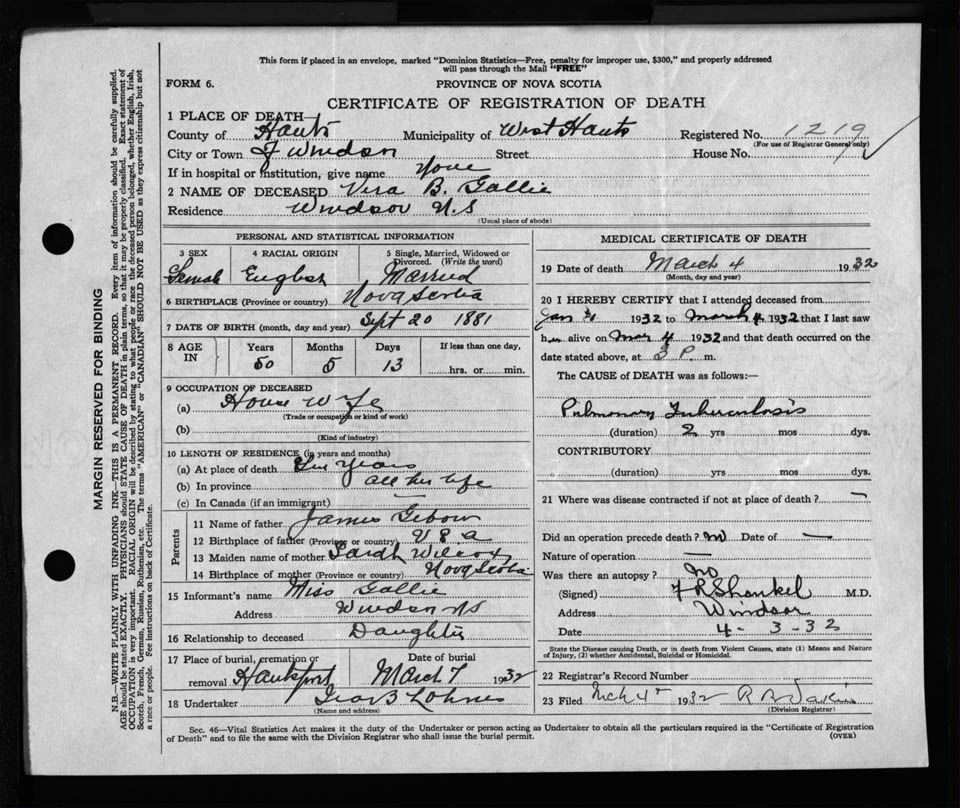 This form if placed in an envelope, marked "Dominion Statistics—Free, penalty for improper use, $300," and properly addressed
will pass through the Mail "FREE"
FORM 6.
PROVINCE OF NOVA SCOTIA
CERTIFICATE OF REGISTRATION OF DEATH
1 PLACE OF DEATH—
County of Hants Municipality of West Hants Registered No. 1219
(For use of Registrar General only)
City or Town Windsor Street House No.
If in hospital or institution, give name None
2 NAME OF DECEASED Vera B. Gallie
Residence Windsor N.S
(Usual place of abode)
PERSONAL AND STATISTICAL INFORMATION
3 SEX 4 RACIAL ORIGIN 5 Single, Married, Widowed or
Divorced. (Write the word)
Female English Married
6 BIRTHPLACE (Province or country) Nova Scotia
7 DATE OF BIRTH (month, day and year) Sept 20 1881
8 AGE IN Years Months Days If less than one day,
50 5 13 hrs. or min.
9 OCCUPATION OF DECEASED
(a) House Wife
(Trade or occupation or kind of work)
(b)
(Kind of industry)
10 LENGTH OF RESIDENCE (in years and months)
(a) At place of death Years
(b) In province all her life
(c) In Canada (if an immigrant)
Parents
11 Name of father James
12 Birthplace of father (Province or country) U S A
13 Maiden name of mother Sarah Wilcox
14 Birthplace of mother (Province or country) Nova Scotia
15 Informant's name Miss Gallie
Address Windsor NS
16 Relationship to deceased Daughter
17 Place of burial, cremation or Date of burial
removal Hantsport March 7 1932
18 Undertaker Geo B Lohnes
(Name and address)
MEDICAL CERTIFICATE OF DEATH
19 Date of death March 4 1932
(Month, day and year)
20 I HEREBY CERTIFY that I attended deceased from
Jan 1932 to March 4 1932 that I last saw
her alive on Mar 4 1932 and that death occurred on the
date stated above, at 3 P. m.
The CAUSE of DEATH was as follows:—
Pulmonary Tuberculosis
(duration) 2 yrs mos dys.
CONTRIBUTORY
(duration) yrs mos dys.
21 Where was disease contracted if not at place of death? —
Did an operation precede death? No Date of —
Nature of operation —
Was there an autopsy? No
(Signed) F R Shankel M.D.
Address Windsor
Date 4-3-32
State the Disease causing Death, or in death from Violent Causes, state (1) Means and Nature
of Injury, (2) whether Accidental, Suicidal or Homicidal.
22 Registrar's Record Number
23 Filed Mch 4 1932
(Division Registrar)
Sec. 46—Vital Statistics Act makes it the duty of the Undertaker or person acting as Undertaker to obtain all the particulars required in the "Certificate of Registration
of Death" and to file the same with the Division Registrar who shall issue the burial permit. (OVER)
MARGIN RESERVED FOR BINDING
N.B.—WRITE PLAINLY WITH UNFADING INK—THIS IS A PERMANENT RECORD. Every item of information should be carefully supplied.
AGE should be stated EXACTLY. PHYSICIANS should STATE CAUSE OF DEATH in plain terms, so that it may be properly classified. Exact statement of
OCCUPATION is very important. RACIAL ORIGIN will be described by stating to what people or race the deceased person belonged, whether English, Irish,
Scotch, French, German, Russian, Ruthenian, etc. The terms "AMERICAN" or "CANADIAN" SHOULD NOT BE USED as they express citizenship but not
a race or people. See instructions on back of Certificate.